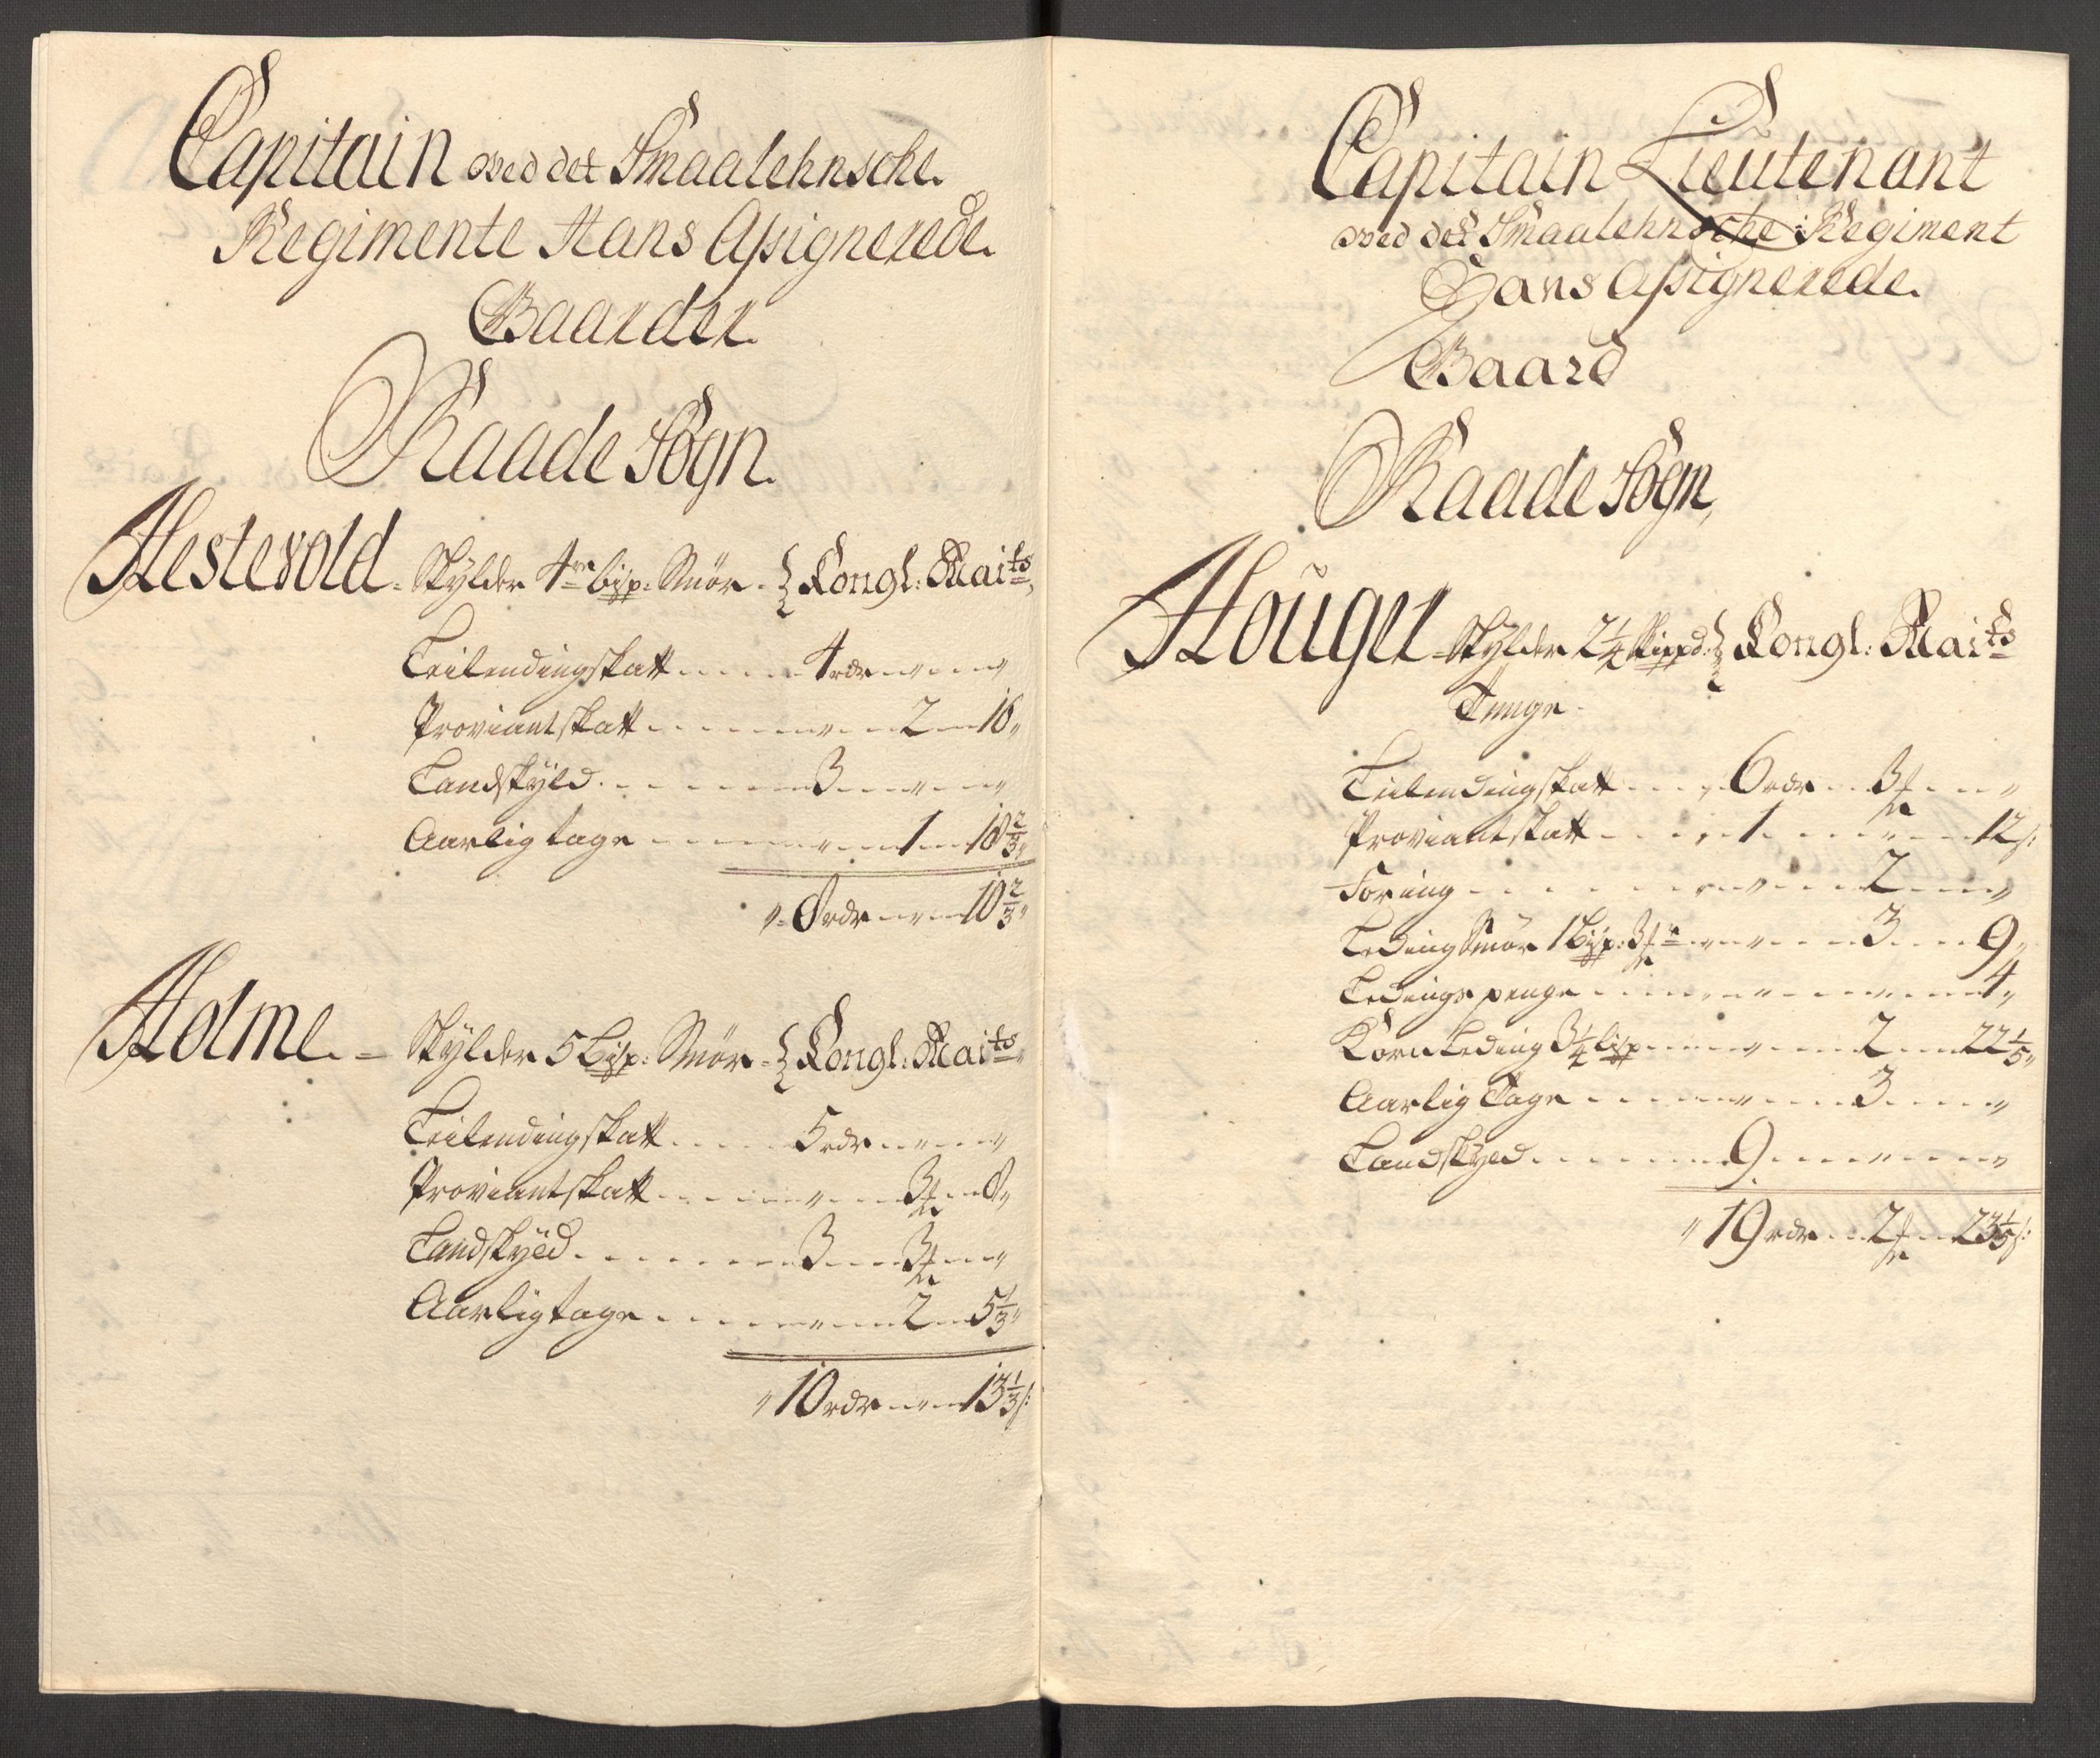 Capitain wed det Smaalehnsche
Regimente Hans Assignerede
Gaarder
Raade Sogn.
Hestevold. Skylder 4re bisp: Smör. { Kongl: Mai:ts
Leilendingskatt 4 rdr " "
Proviantskatt " 2 16"
Landskÿld 3 " "
Aarlig tage " 1 18 2/3"
" 8 rdr " 10 2/3"
Holme. Skylder 5 Bisp: Smör { Kongl: Mai:ts
Leilendingskatt 5 rdr " "
Proviantskatt " 3 8"
Landskyld 3 3 "
Aarlig tage " 2 5 1/3"
" 10 rdr " 13 1/3 s:
Capitain Lieutenant
wed det Smaalehnsche Regiment
Hans Assignerede
Gaard
Raade Sogn,
Houger Skylder 2 1/4 Skippd: { Kongl: Mai:ts
Tunge
Leilendingskatt 6 rdr 3 "
Proviantskatt 1 " 12 s:
Foring " 2 "
Leding Smör 1 Bisp: 3 " 3 9"
Ledings penge " " 4"
Korn Leding 3 1/4 bisp " 2 22 1/5"
Aarlig Tage " 3 "
Landskyld 9 " "
" 19 rdr 2 23 1/5 s: